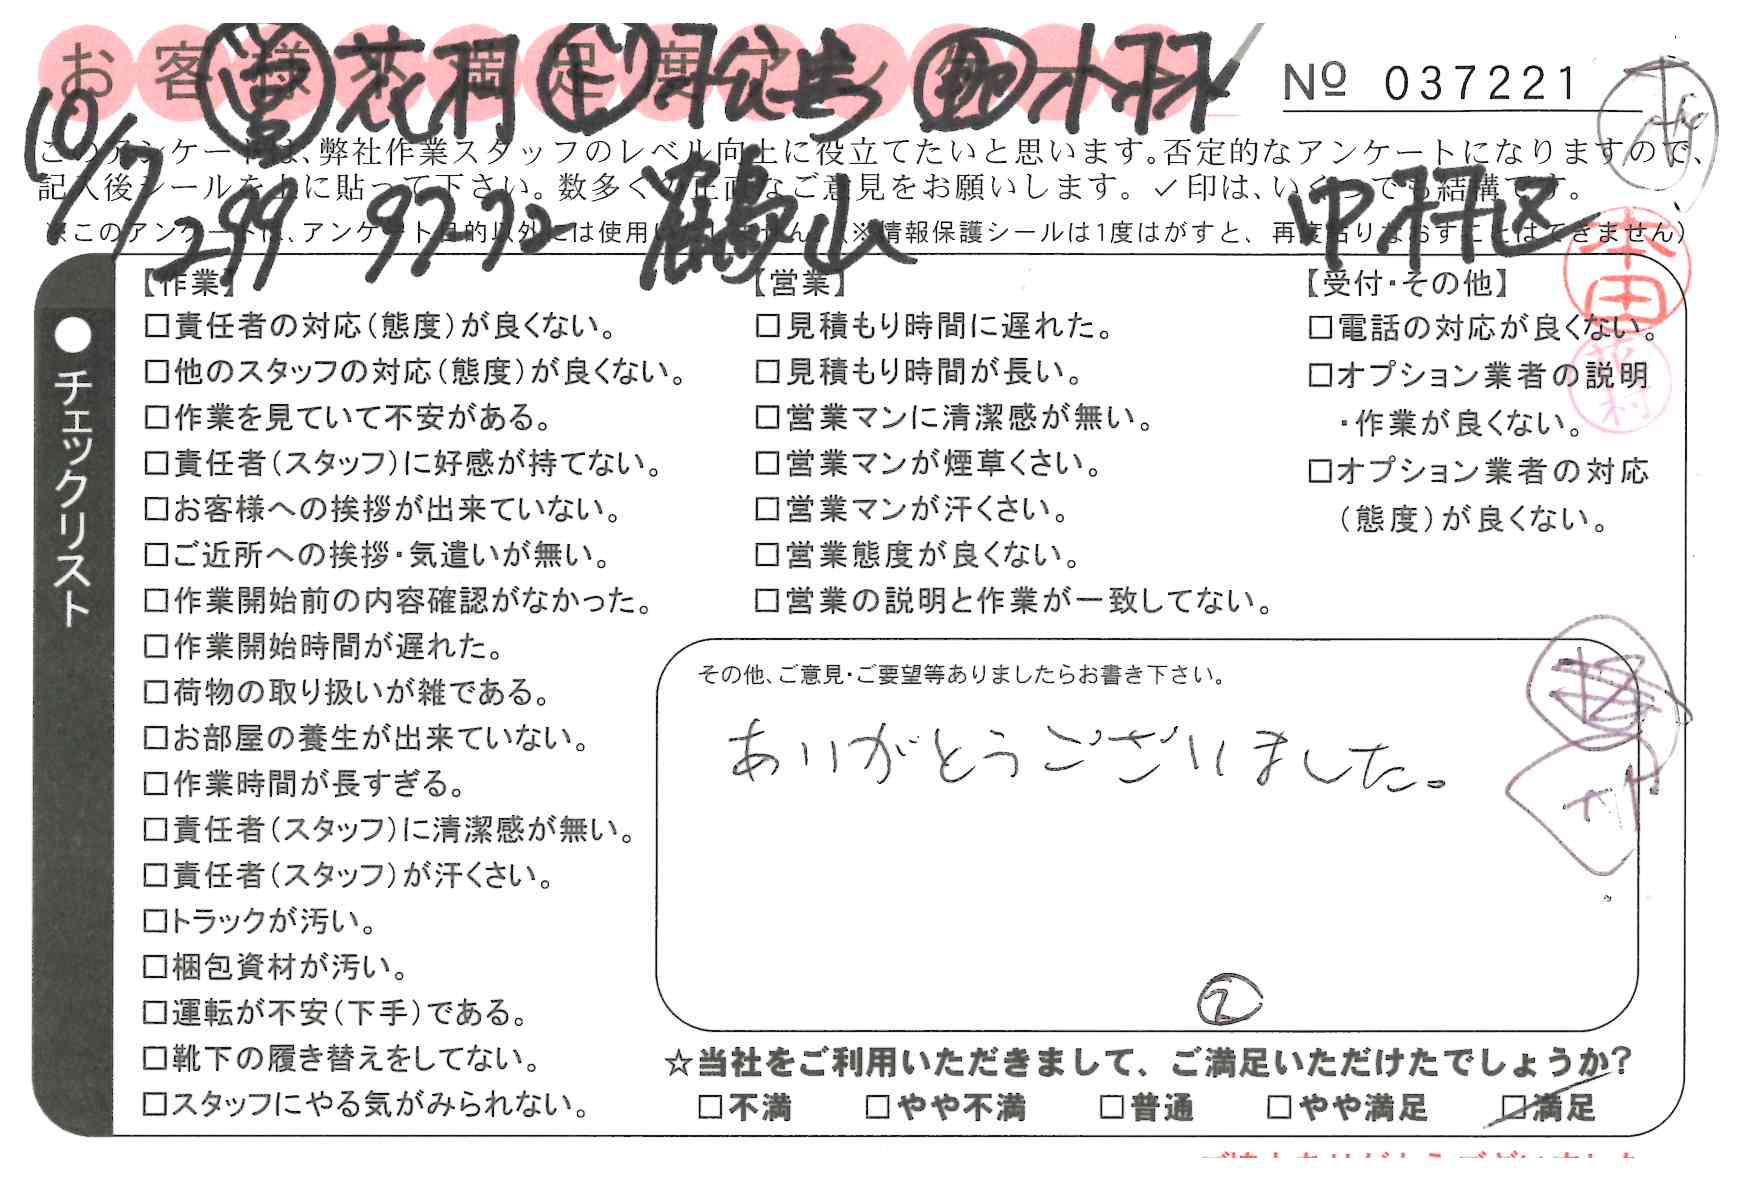 お客様不満足度アンケート
営 花村 ド 松島 助 木村
№ 037221
10/7 299 9772 鶴山 中村区
このアンケートは、弊社作業スタッフのレベル向上に役立てたいと思います。否定的なアンケートになりますので、
記入後シールを上に貼って下さい。数多くの正直なご意見をお願いします。✓印は、いくつでも結構です。
※このアンケートは、アンケート目的以外には使用いたしません。(※情報保護シールは1度はがすと、再度貼りなおすことはできません)
本田
花村
●チェックリスト
【作業】
□責任者の対応(態度)が良くない。
□他のスタッフの対応(態度)が良くない。
□作業を見ていて不安がある。
□責任者(スタッフ)に好感が持てない。
□お客様への挨拶が出来ていない。
□ご近所への挨拶・気遣いが無い。
□作業開始前の内容確認がなかった。
□作業開始時間が遅れた。
□荷物の取り扱いが雑である。
□お部屋の養生が出来ていない。
□作業時間が長すぎる。
□責任者(スタッフ)に清潔感が無い。
□責任者(スタッフ)が汗くさい。
□トラックが汚い。
□梱包資材が汚い。
□運転が不安(下手)である。
□靴下の履き替えをしてない。
□スタッフにやる気がみられない。
【営業】
□見積もり時間に遅れた。
□見積もり時間が長い。
□営業マンに清潔感が無い。
□営業マンが煙草くさい。
□営業マンが汗くさい。
□営業態度が良くない。
□営業の説明と作業が一致してない。
【受付・その他】
□電話の対応が良くない。
□オプション業者の説明
・作業が良くない。
□オプション業者の対応
(態度)が良くない。
その他、ご意見・ご要望等ありましたらお書き下さい。
ありがとうございました。
②
☆当社をご利用いただきまして、ご満足いただけたでしょうか?
□不満 □やや不満 □普通 □やや満足 ☑満足